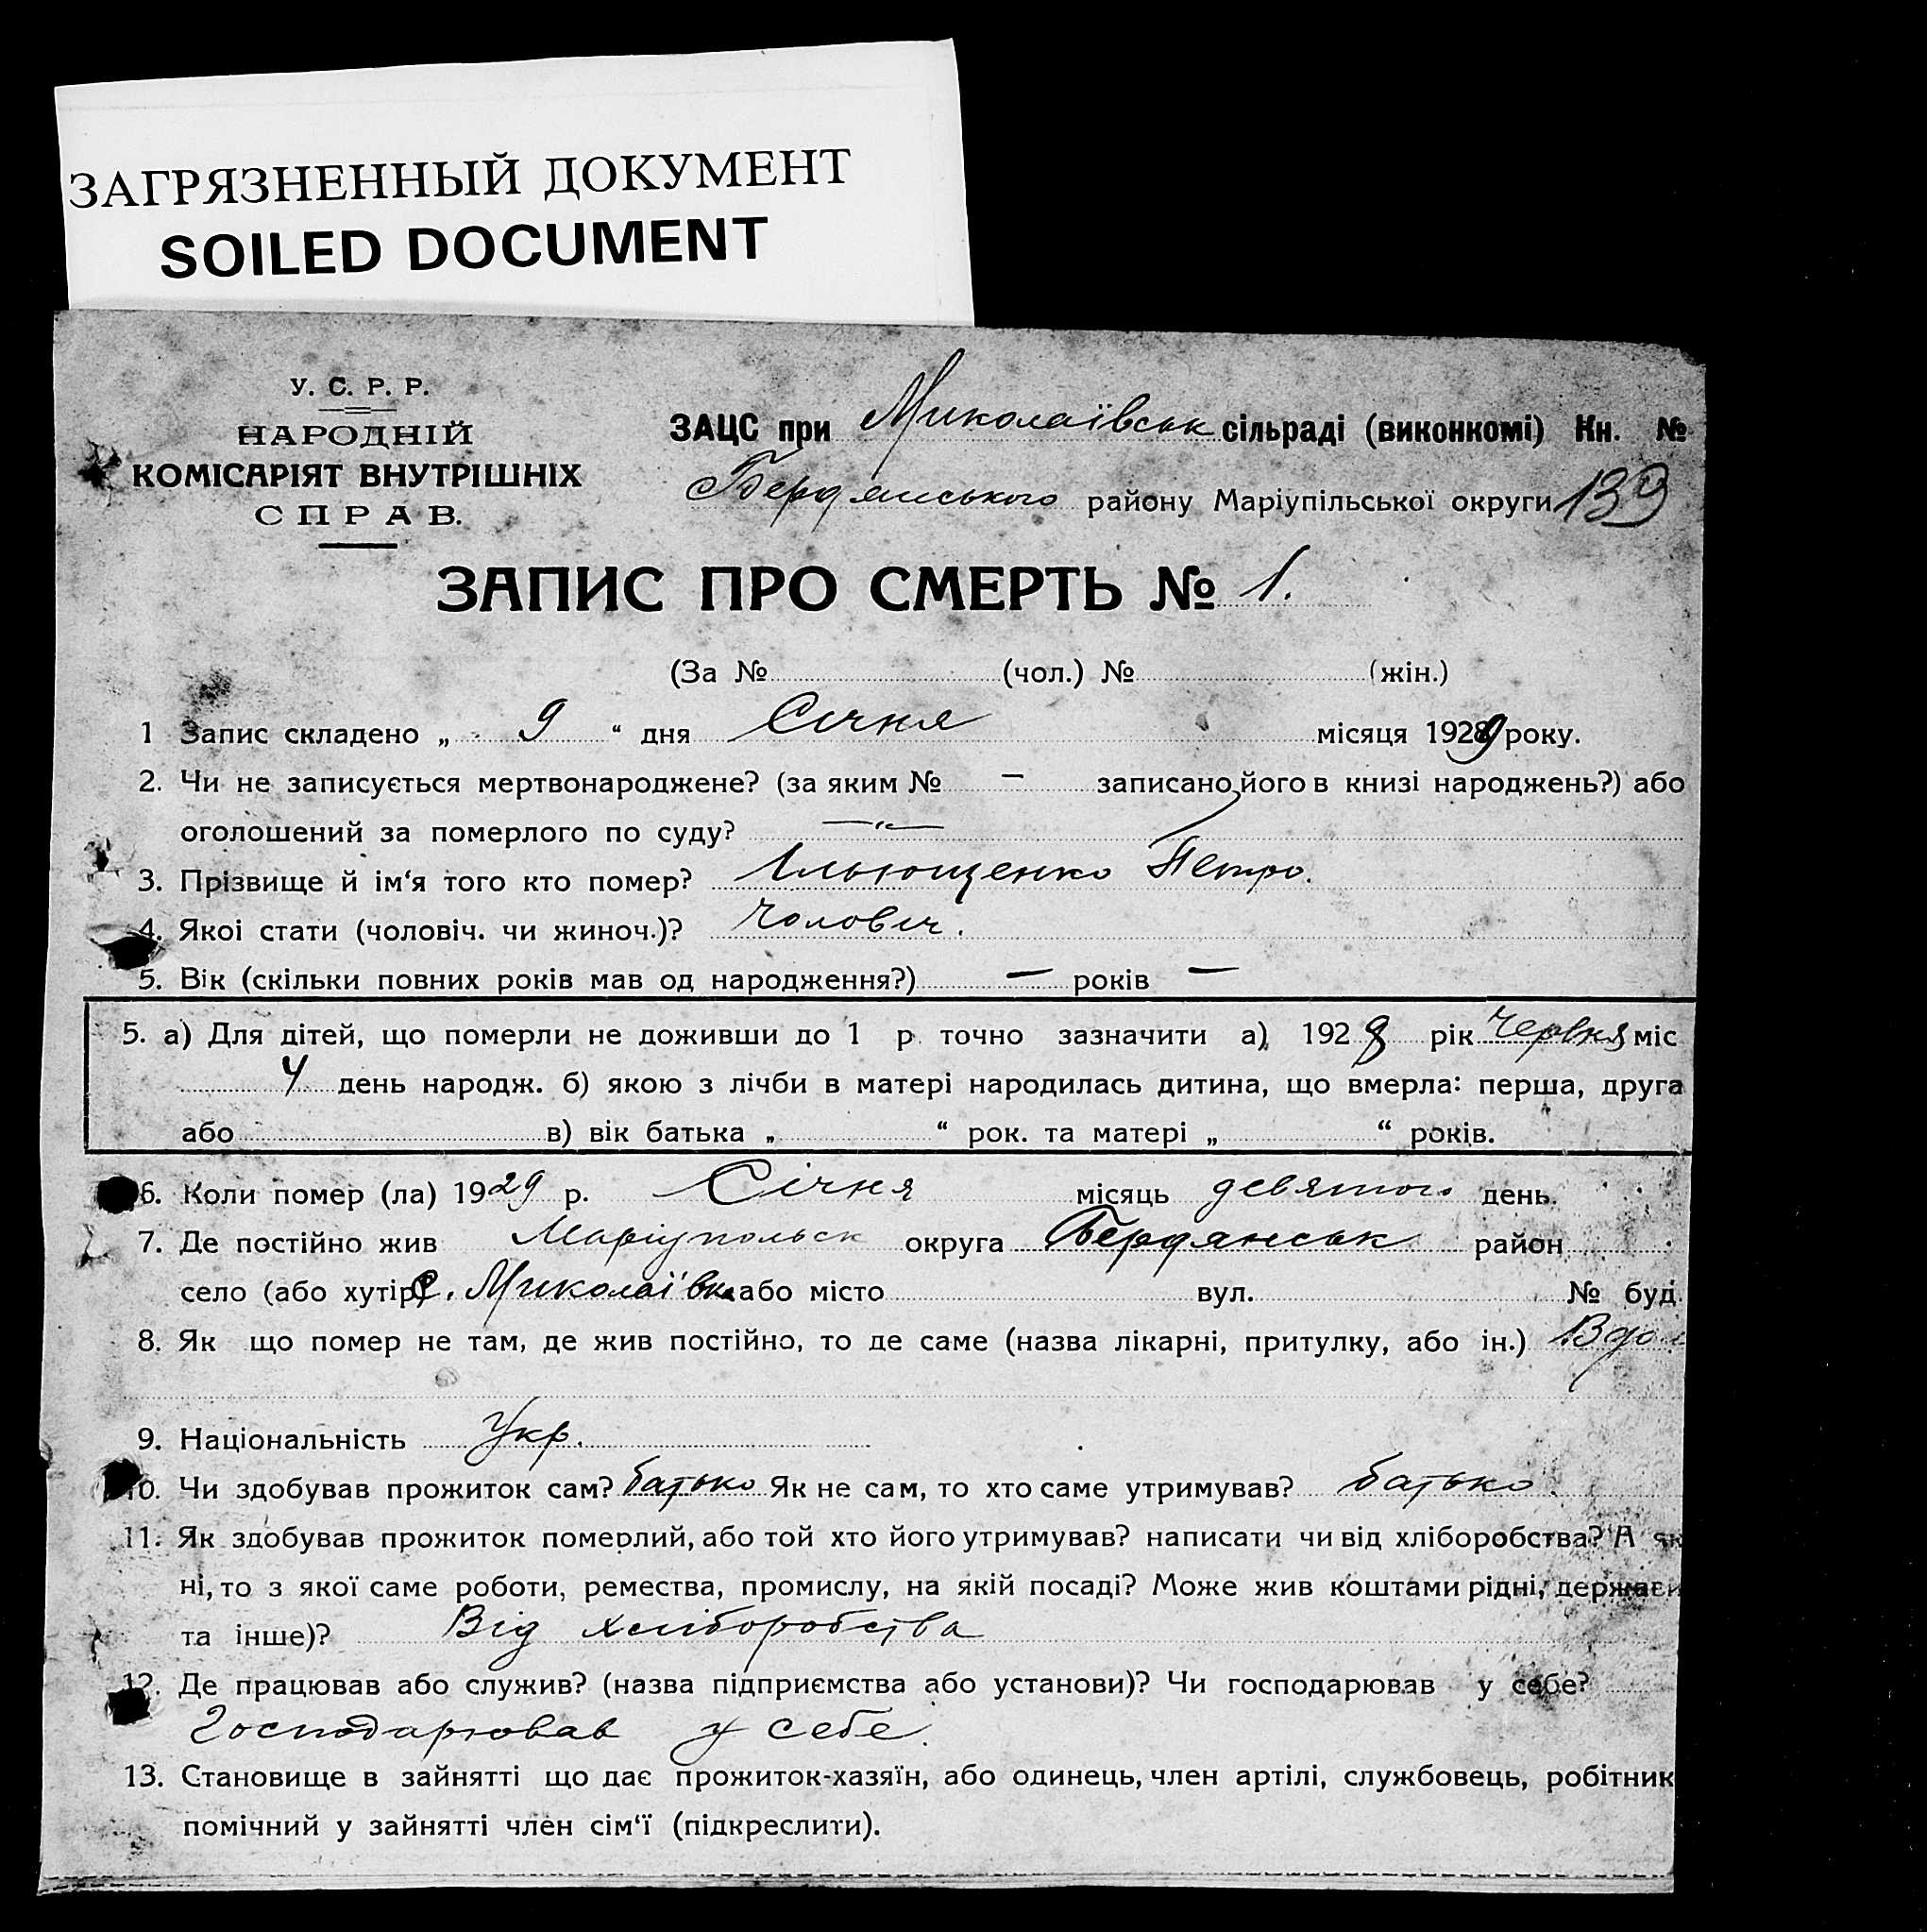 ЗАГРЯЗНЕННЫЙ ДОКУМЕНТ
SOILED DOCUMENT
У. С. Р. Р.
НАРОДНІЙ
КОМІСАРІЯТ ВНУТРІШНІХ
СПРАВ.
ЗАЦС при Миколаївськ сільраді (виконкомі) Кн. №
Бердянського району Маріупільської округи 139
ЗАПИС ПРО СМЕРТЬ № 1.
(За № (чол.) № (жін.)
1 Запис складено „ 9 “ дня Січня місяця 1929 року.
2. Чи не записується мертвонароджене? (за яким № — записано його в книзі народжень?) або
оголошений за померлого по суду? —„—
3. Прізвище й ім‘я того кто помер? Ільющенко Петро.
4. Якоі стати (чоловіч. чи жиноч.)? Чоловіч.
5. Вік (скільки повних років мав од народження?) — років —
5. а) Для дітей, що померли не доживши до 1 р. точно зазначити а) 1928 рік Червня міс
4 день народж. б) якою з лічби в матері народилась дитина, що вмерла: перша, друга
або в) вік батька „ “ рок. та матері „ “ років.
6. Коли помер (ла) 1929 р. Січня місяць девятого день.
7. Де постійно жив Маріупольск округа Бердянськ район
село (або хутір) с. Миколаївка або місто вул. № буд.
8. Як що помер не там, де жив постійно, то де саме (назва лікарні, притулку, або ін.)
9. Національність Укр.
10. Чи здобував прожиток сам? батько Як не сам, то хто саме утримував? батько.
11. Як здобував прожиток померлий, або той хто його утримував? написати чи від хліборобства? А як
ні, то з якої саме роботи, ремества, промислу, на якій посаді? Може жив коштами рідні, держави
та інше)? Від хліборобства
12. Де працював або служив? (назва підприємства або установи)? Чи господарював у себе?
Господарював у себе.
13. Становище в зайнятті що дає прожиток-хазяїн, або одинець, член артілі, службовець, робітник
помічний у зайнятті член сім‘ї (підкреслити).